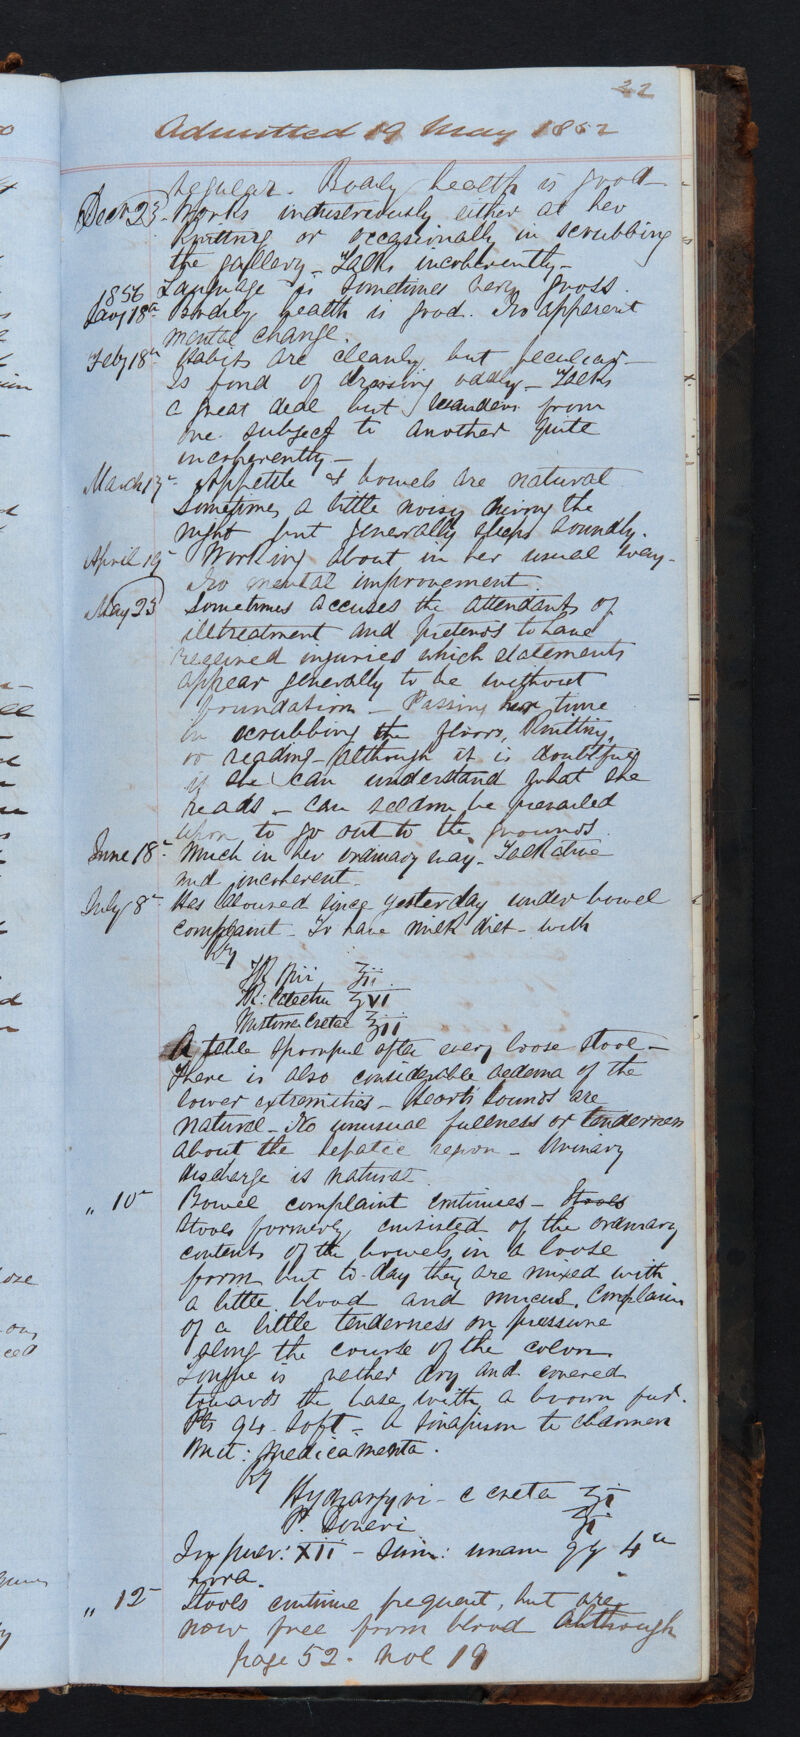 22
Admitted 19 May 1852
regular. Bodily health is good
Decr 23. Works industriously either at her
Knitting or occasionally in scrubbing
the gallery. Talks incoherently.
Language is sometimes very gross.
1856
Jany 18th Bodily health is good. No apparent
mental change.
Feby 18th Habits are cleanly but peculiar
Is fond of dressing oddly. Talks
a great deal but wanders from
one subject to another quite
incoherently
March Appetite & bowels are natural
Sometimes a little noisy during the
night but generally sleeps soundly.
April 19 Working about in her usual way.
No mental improvement.
May 23 Sometimes accuses the attendants of
illtreatment and pretends to have
received injuries which statements
appear generally to be without
foundation. Passing her time
in scrubbing the floors, Knitting,
or reading although it is doubtful
if she can understand what she
reads. Can seldom be prevailed
upon to go out to the grounds.
June 18th Much in her ordinary way. Talkative
and incoherent.
July 8th Has laboured since yesterday under bowel
complaint. To have milk diet with
Rx
Tr Opii ʒii
Tr: Catechu ʒvi
Misturae Cretae ℥iii
A table spoonful after every loose stool
There is also considerable aedema of the
lower extremities. Heart's sounds are
natural. No unusual fullness or tenderness
about the hepatic region. Urinary
discharge is natural.
" 10th Bowel complaint continues. Stools
Stools formerly consisted of the ordinary
contents of the bowels in a loose
form but to-day they are mixed with
a little blood and mucus. Complains
of a little tenderness on pressure
along the course of the colon.
Tongue is rather dry and covered
towards the base with a brown fur.
Pls 94. Soft. A sinapism to abdomen
Omit: medicamenta.
Rx
Hydrargyri c creta
P. Doveri
In pulv: XII sum: unam qq 4ta
hora.
" 12 Stools continue frequent, but are
now free from blood although
page 52. Vol 19